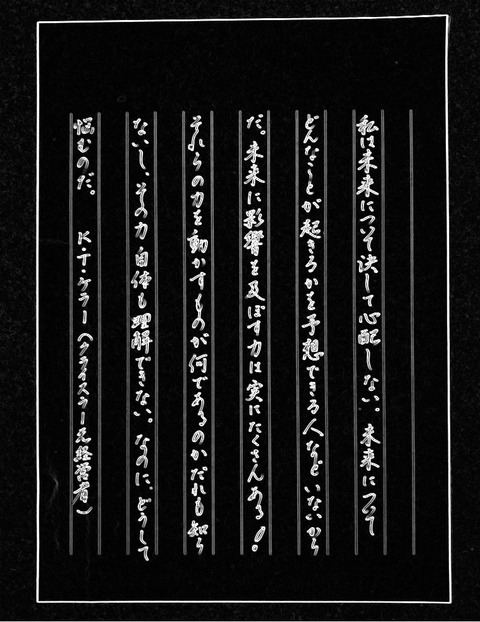 私は未来について決して心配しない。未来について
どんなことが起きるかを予想できる人などいないから
だ。未来に影響を及ぼす力は実にたくさんある。
それらの力を動かすものが何であるのかだれも知ら
ないし、その力自体も理解できない。なのに、どうして
悩むのだ。 K・T・ケラー(クライスラー元経営者)